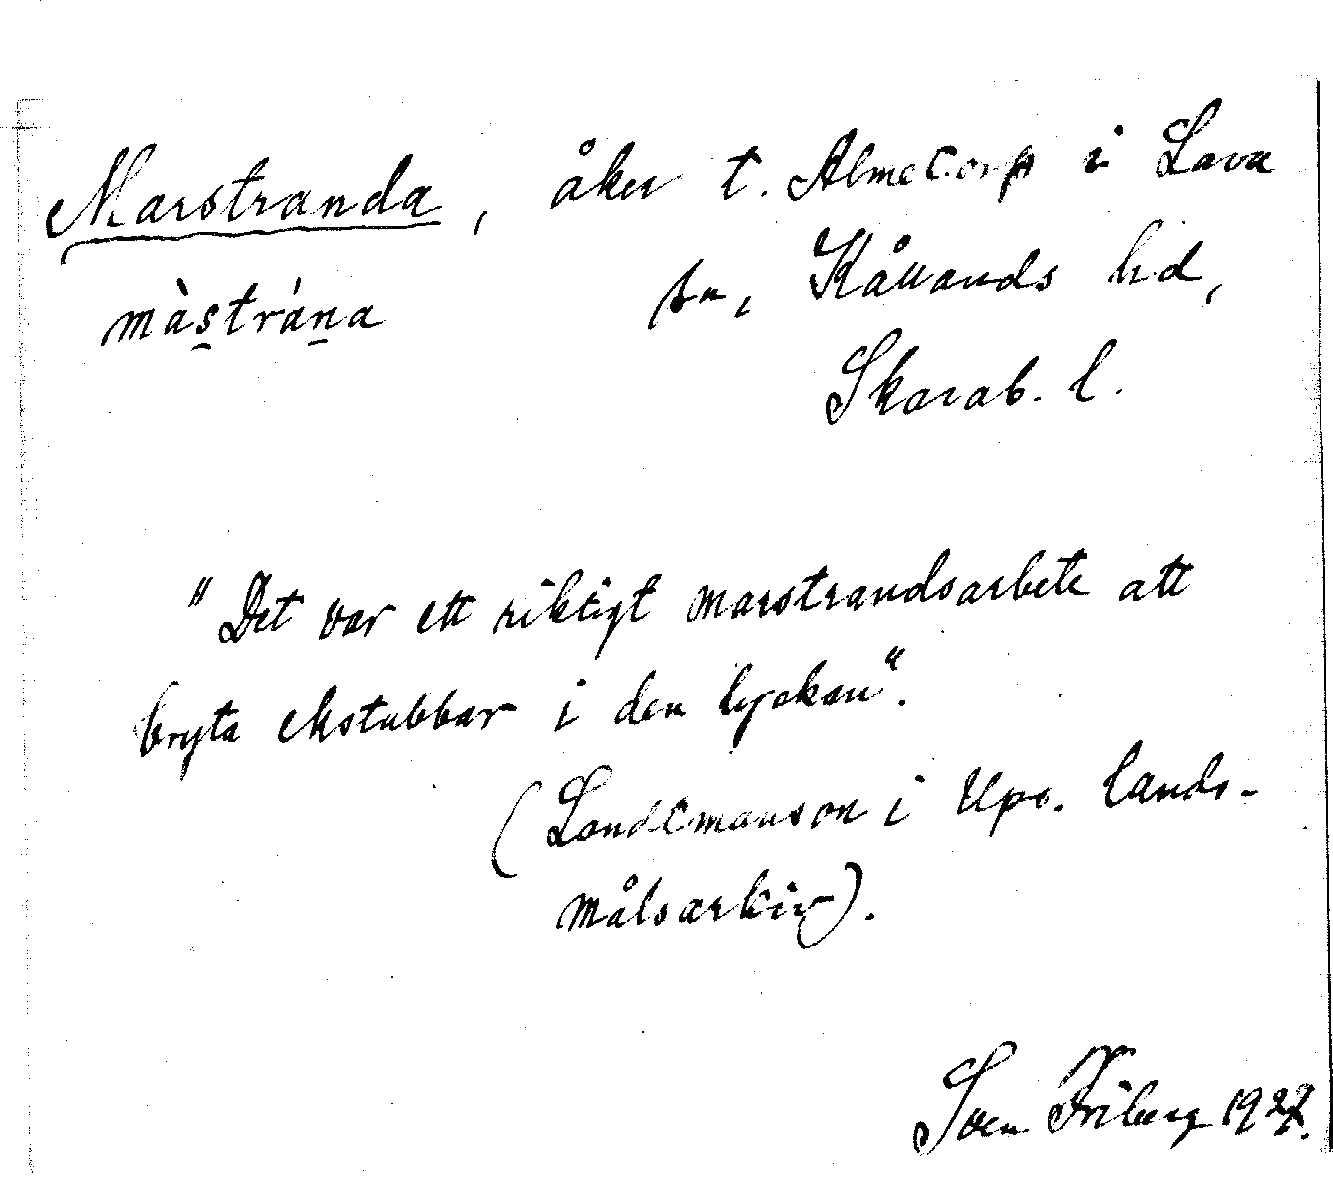 Marstranda, åker t. Almetorp i Lava
màs̱trán̠a sn, Kållands hd,
Skarab. l.
"Det var ett riktigt marstrandsarbete att
bryta ekstubbar i den lyckan".
(Landtmanson i Ups. lands-
målsarkiv).
Sven Friberg 1927.